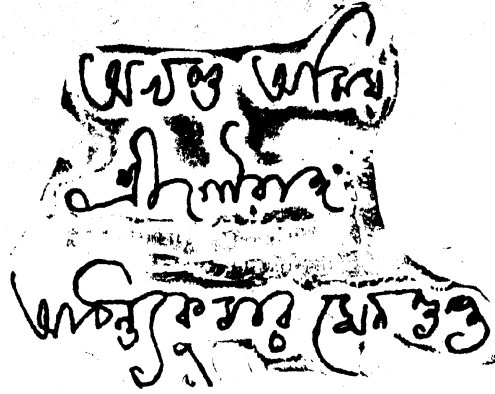 অখণ্ড অমিয়
শ্রীগৌরাঙ্গ
অচিন্ত্যকুমার সেনগুপ্ত